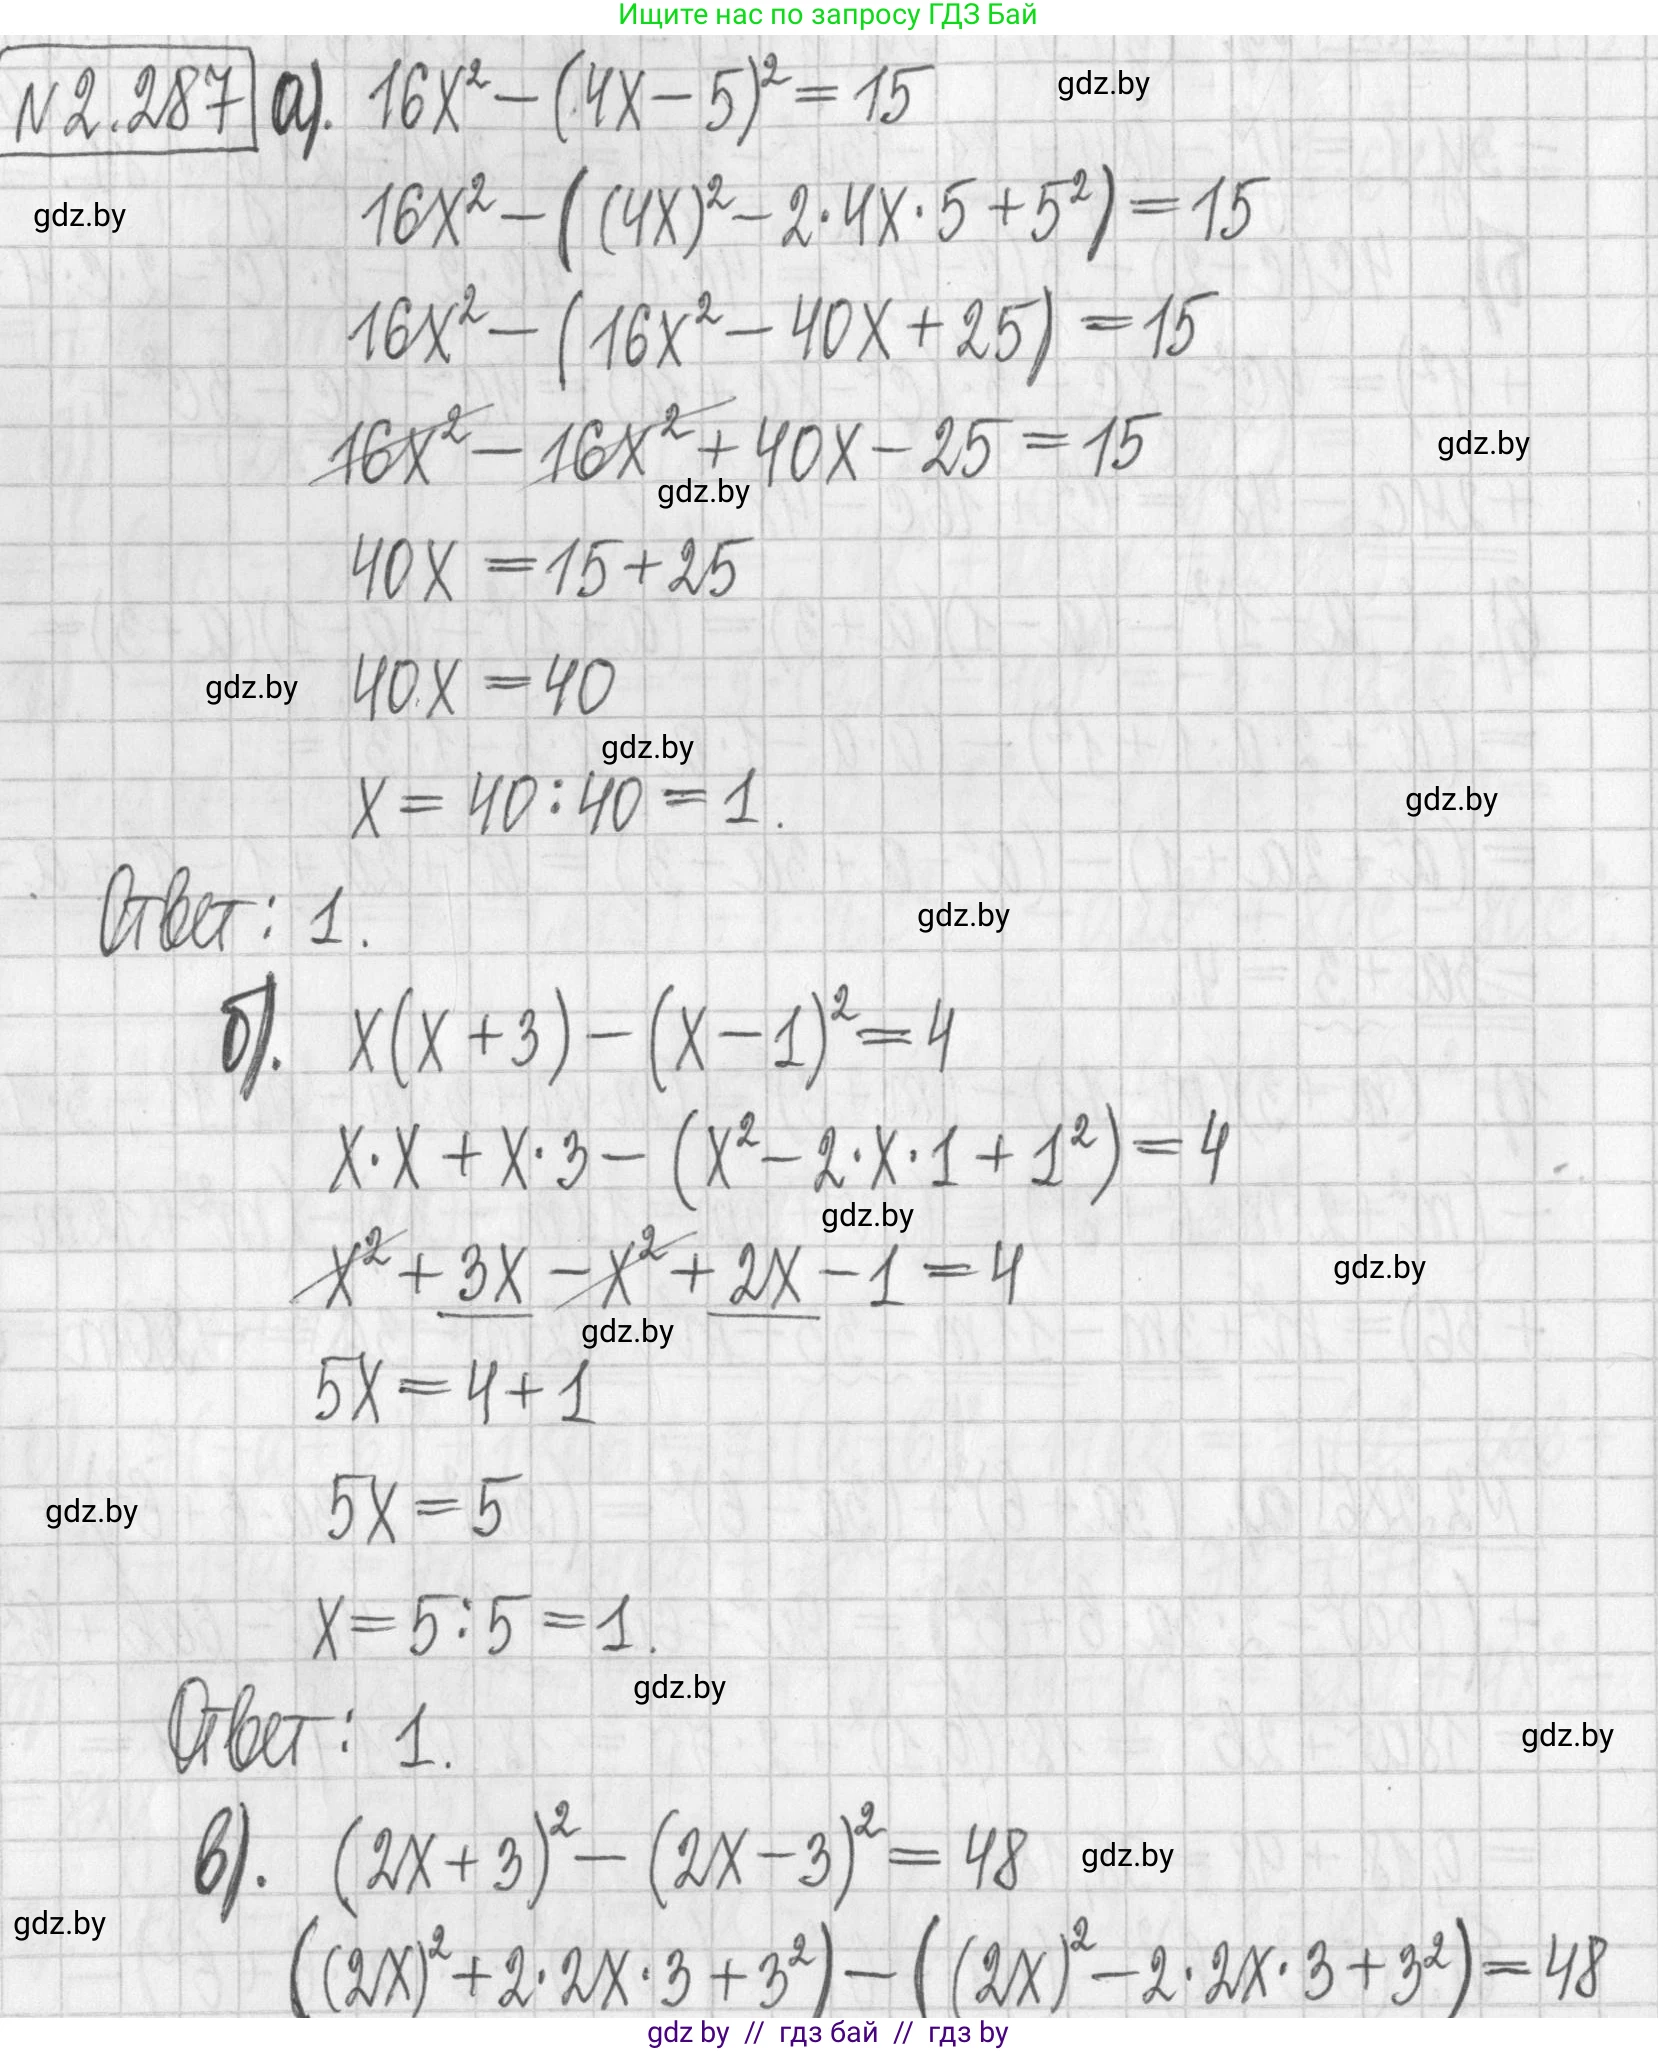 Ищите нас по запросу ГДЗ Бай
№2.287 а). 16x² − (4x − 5)² = 15
gdz.by
gdz.by
16x² − ((4x)² − 2·4x·5 + 5²) = 15
16x² − (16x² − 40x + 25) = 15
16x² − 16x² + 40x − 25 = 15
gdz.by
gdz.by
40x = 15 + 25
gdz.by
40x = 40
gdz.by
x = 40:40 = 1.
gdz.by
Ответ: 1.
gdz.by
б). x(x + 3) − (x − 1)² = 4
x·x + x·3 − (x² − 2·x·1 + 1²) = 4
gdz.by
x² + 3x − x² + 2x − 1 = 4
gdz.by
gdz.by
5x = 4 + 1
gdz.by
5x = 5
x = 5:5 = 1.
gdz.by
Ответ: 1.
gdz.by
в). (2x + 3)² − (2x − 3)² = 48
gdz.by
gdz.by
((2x)² + 2·2x·3 + 3²) − ((2x)² − 2·2x·3 + 3²) = 48
gdz by // гдз бай // гдз by